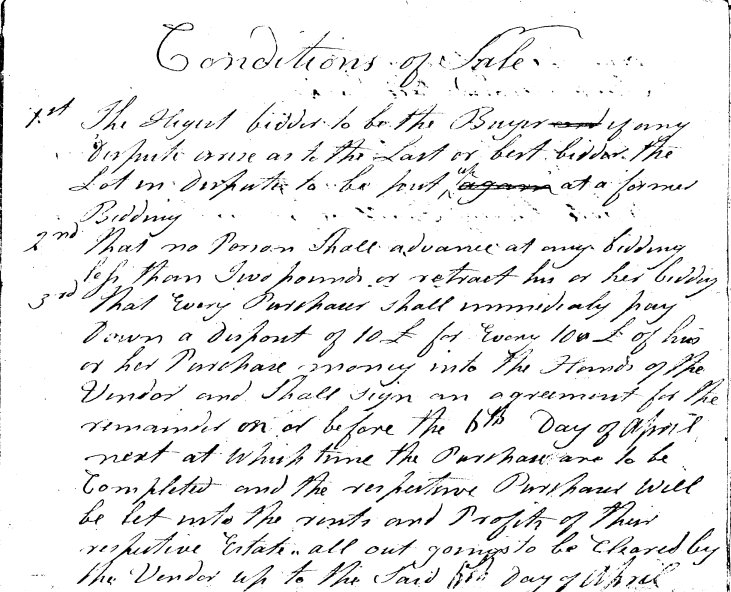 Conditions of Sale
1.st The Higest bidder to be the Buyer and if any
Dispute arise as to the Last or best bidder the
Lot in Dispute to be put up again at a former
Bidding
2nd That no Person Shall advance at any bidding
less than Two pounds or retract his or her bidding
3rd That Every Purchaser shall immediately pay
Down a Disposit of 10 £ for Every 100 £ of his
or her Purchase money into the Hands of the
Vendor and Shall sign an agreement for the
remainder on or before the Day of April
next at Which time the Purchase are to be
Completed and the respective Purchaser Will
be let into the rents and Profits of their
respective Estate all out goings to be Cleared by
the Vendor up to the Said Day of April